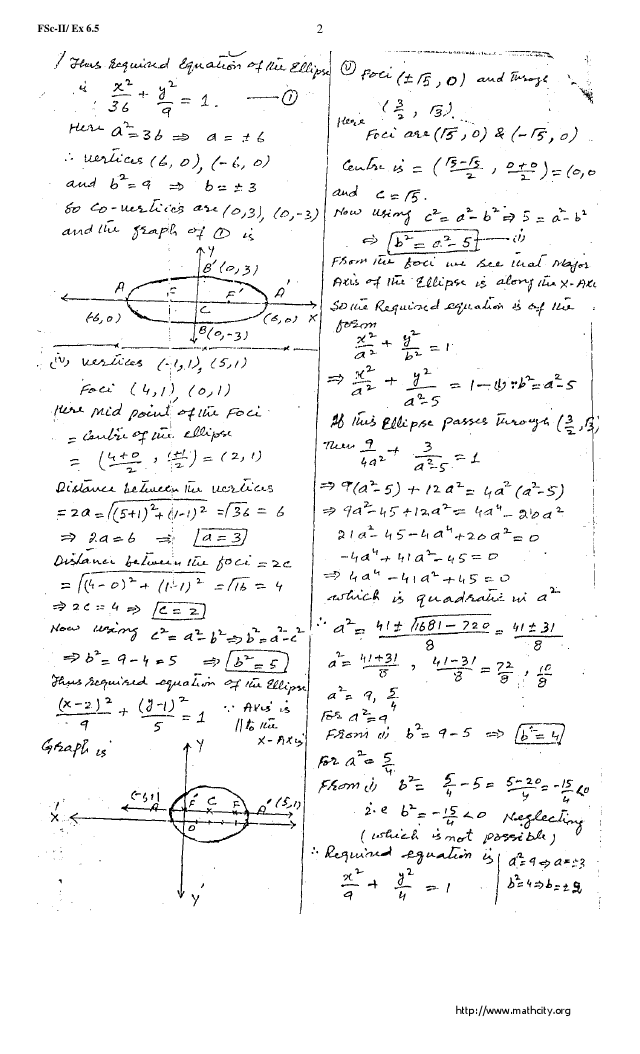 FSc-II/ Ex 6.5
2
Thus Required Equation of the Ellipse
is x²/36 + y²/9 = 1. —①
Here a²=36 ⇒ a = ±6
∴ vertices (6, 0), (-6, 0)
and b²=9 ⇒ b=±3
So Co-vertices are (0,3), (0,-3)
and the graph of ① is
Y
B'(0,3)
A F F' A'
C
(-6,0) (6,0) X
B(0,-3)
iv, vertices (-1,1), (5,1)
Foci (4,1), (0,1)
Here Mid point of the Foci
= Centre of the ellipse
= (4+0/2, 1+1/2) = (2,1)
Distance between the vertices
= 2a = √(5+1)²+(1-1)² = √36 = 6
⇒ 2a=6 ⇒ a=3
Distance between the foci = 2c
= √(4-0)²+(1-1)² = √16 = 4
⇒ 2c=4 ⇒ c=2
Now using c²=a²-b² ⇒ b²=a²-c²
⇒ b²=9-4=5 ⇒ b²=5
Thus required equation of the Ellipse
(x-2)²/9 + (y-1)²/5 = 1 ∵ Axis is
∥ to the
X-Axis
Graph is
Y
(-1,1) A F' C F A' (5,1)
X' O X
Y'
ⓥ Foci (±√5, 0) and through
(3/2, √3).
Here
Foci are (√5, 0) & (-√5, 0)
Centre is = (√5-√5/2, 0+0/2) = (0,0
and c=√5.
Now using c²=a²-b² ⇒ 5=a²-b²
⇒ b²=a²-5 —(i)
From the foci we see that Major
Axis of the Ellipse is along the X-Axi
So the Required equation is of the
form
x²/a² + y²/b² = 1
⇒ x²/a² + y²/a²-5 = 1 —(ii) ∵ b²=a²-5
If this Ellipse passes through (3/2, √3)
Then 9/4a² + 3/a²-5 = 1
⇒ 9(a²-5) + 12a² = 4a²(a²-5)
⇒ 9a²-45+12a² = 4a⁴-20a²
21a²-45-4a⁴+20a²=0
-4a⁴+41a²-45=0
⇒ 4a⁴-41a²+45=0
which is quadratic in a²
∴ a² = 41±√1681-720/8 = 41±31/8
a² = 41+31/8, 41-31/8 = 72/8, 10/8
a² = 9, 5/4
For a²=9
From (i) b² = 9-5 ⇒ b²=4
For a²=5/4
From (i) b² = 5/4-5 = 5-20/4 = -15/4<0
i.e b² = -15/4<0 Neglecting
(which is not possible)
∴ Required equation is a²=9⇒a=±3
x²/9 + y²/4 = 1 b²=4⇒b=±2
http://www.mathcity.org